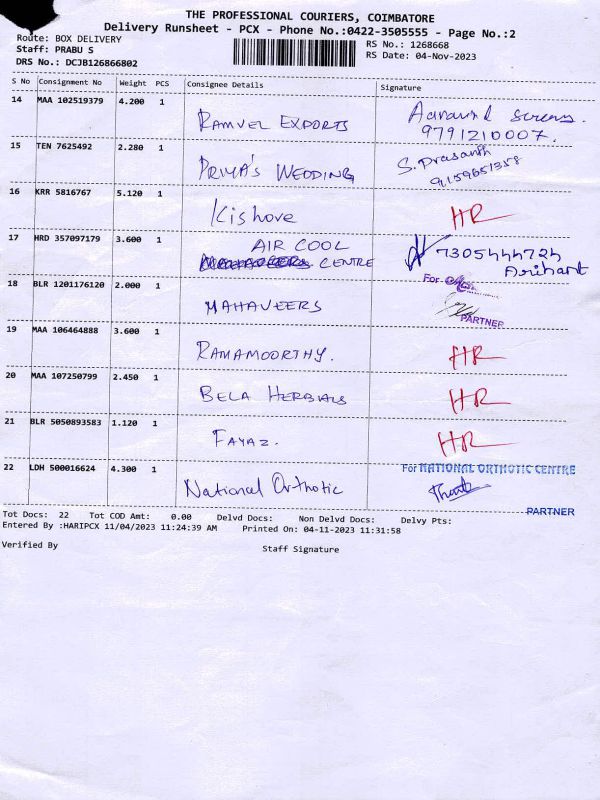 THE PROFESSIONAL COURIERS, COIMBATORE
Delivery Runsheet - PCX - Phone No.:0422-3505555 - Page No.:2
Route: BOX DELIVERY
RS No.: 1268668
Staff: PRABU S
RS Date: 04-Nov-2023
DRS No.: DCJB126866802
S No Consignment No Weight PCS Consignee Details Signature
14 MAA 102519379 4.200 1 RAMVEL EXPORTS
9791210007.
15 TEN 7625492 2.280 1 PRIYA'S WEDDING S. Prasanth
9159651358
16 KRR 5816767 5.120 1 Kishore HR
17 HRD 357097179 3.600 1 AIR COOL 7305444724
CENTRE Arihant
18 BLR 1201176120 2.000 1 MAHAVEERS For
PARTNER
19 MAA 106464888 3.600 1 RAMAMOORTHY. HR
20 MAA 107250799 2.450 1 BELA HERBALS HR
21 BLR 5050893583 1.120 1 FAYAZ. HR
22 LDH 500016624 4.300 1 National Orthotic For NATIONAL ORTHOTIC CENTRE
PARTNER
Tot Docs: 22 Tot COD Amt: 0.00 Delvd Docs: Non Delvd Docs: Delvy Pts:
Entered By :HARIPCX 11/04/2023 11:24:39 AM Printed On: 04-11-2023 11:31:58
Verified By Staff Signature